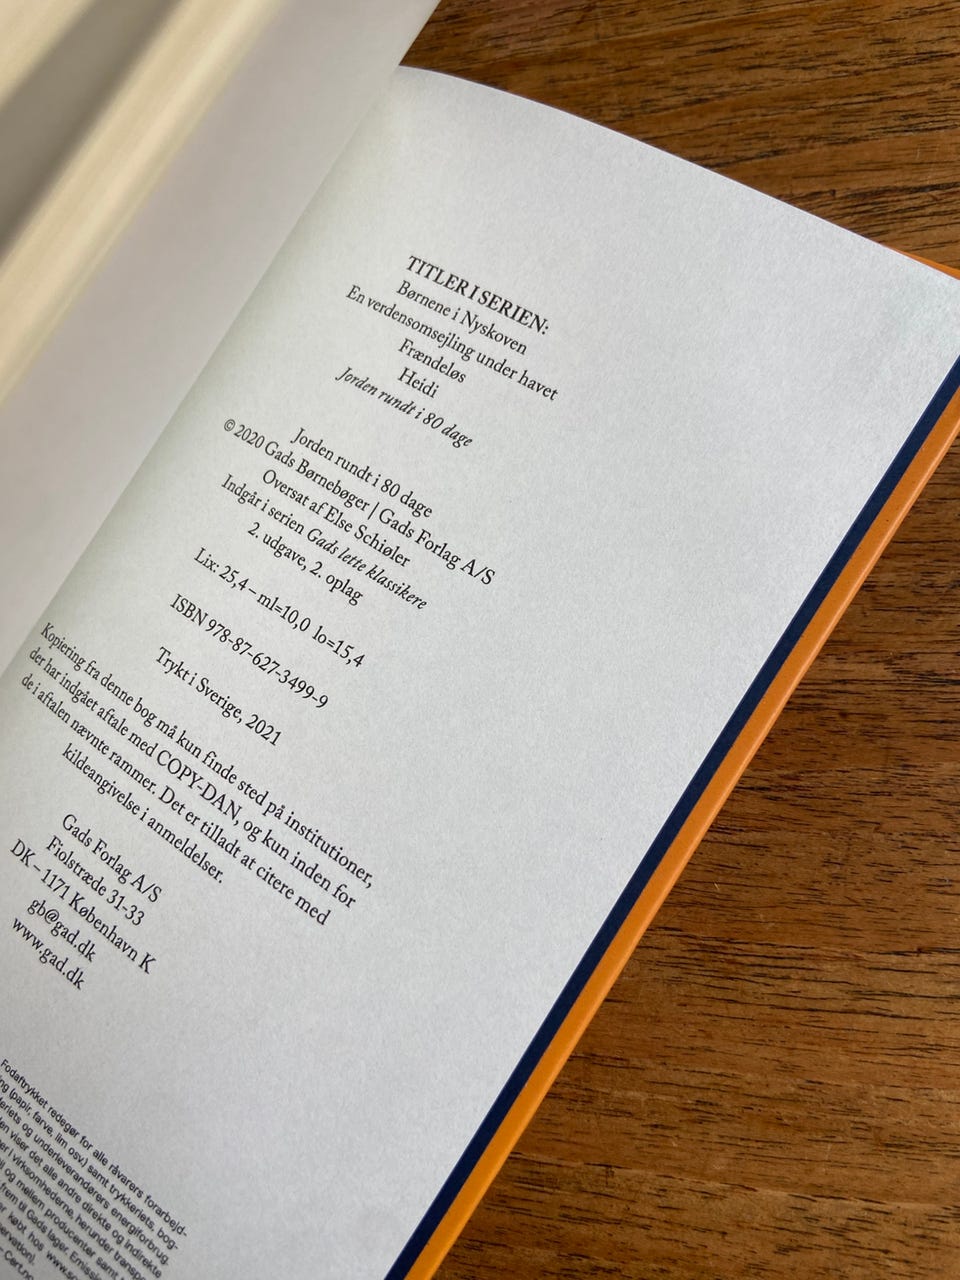 TITLER I SERIEN:
Børnene i Nyskoven
En verdensomsejling under havet
Frændeløs
Heidi
Jorden rundt i 80 dage
Jorden rundt i 80 dage
© 2020 Gads Børnebøger | Gads Forlag A/S
Oversat af Else Schiøler
Indgår i serien Gads lette klassikere
2. udgave, 2. oplag
Lix: 25,4 – ml=10,0 lo=15,4
ISBN 978-87-627-3499-9
Trykt i Sverige, 2021
Kopiering fra denne bog må kun finde sted på institutioner,
der har indgået aftale med COPY-DAN, og kun inden for
de i aftalen nævnte rammer. Det er tilladt at citere med
kildeangivelse i anmeldelser.
Gads Forlag A/S
Fiolstræde 31-33
DK – 1171 København K
gb@gad.dk
www.gad.dk
Fodaftrykket redegør for alle råvarers forarbejd-
(papir, farve, lim osv.) samt trykkeriets, bog-
og underleverandørers energiforbrug.
viser det alle andre direkte og indirekte
i virksomhederne, herunder
og mellem producenter samt
frem til Gads lager.
købt hos